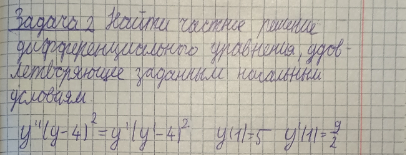 Задача 2 Найти частные решение
дифференциального уравнения, удов-
летворяющие заданным начальным
условиям
y''(y-4)² = y'(y'-4)² y(1)=5 y'(1)=9/2